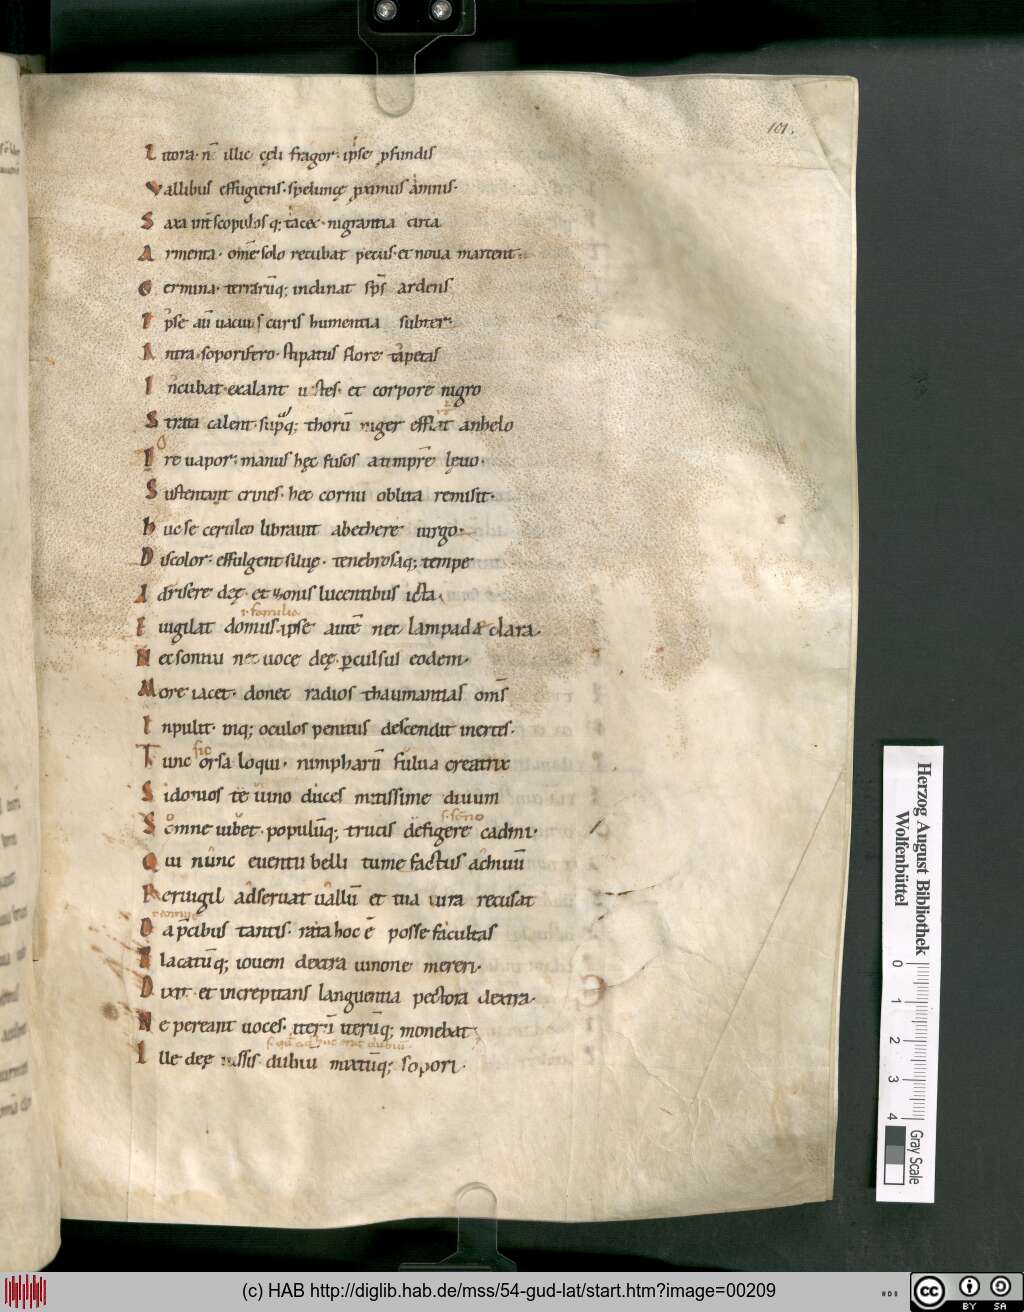 101.
Litora· nc̄ illic cęli fragor· ip̄se p̱fundis
Vallibus effugiens· speluncę p̱ximus ȧmnis·
Saxa int̄ scopulos q; tacet· nigrantia circa
Armenta· om̄e solo recubat pecus· et noua marcent·
Germina· terrarūq; inclinat sp̄s ardens
Ipse aū uacuus curis humentia subter·
Antra· soporifero· stipatus flore tapetas
Incubat· exalant uestes· et corpore nigro
Strata calent· supq; thorū niger efflat anhelo
Ore uapor· manus hęc fusos a timp̄re lęuo·
Sustentant crines· hec cornu oblita remisit·
huc se ceruleo librauit ab ethere uirgo·
Discolor· effulgent siluę· tenebrosaq; tempe
Adrisere deę· et zonis lucentibus icta·
.i. familia
Euigilat domus· ipse autē nec lampada clara·
Nec sonitu nec uoce deę p̱culsus eodem·
More iacet· donec radios thaumantias om̄s
Inpulit· inq; oculos penitus descendit inertes·
sic
Tunc orsa loqui· nimpharū fulua creatrix
Sidonios te iuno duces mitissime diuum
s· somno
Somne iubet· populūq; trucis defigere cadmi·
Qui nunc euentu belli tumefactus achiuū
Peruigil adseruat uallū et tua iura recusat
Da p̄cibus tantis· rata hoc ē posse facultas
Placatūq; iouem dextra iunone mereri·
Dixit· et increpitans languentia pectora dextra·
Ne pereant uoces· iterū iterūq; monebat
Ille deę iussis dubiū mixtūq; sopori·
Herzog August Bibliothek
Wolfenbüttel
0 1 2 3 4
Gray Scale
(c) HAB http://diglib.hab.de/mss/54-gud-lat/start.htm?image=00209
cc BY SA